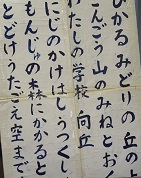 ひかるみどりの丘の上
こんごう山のみねとおく
わたしの学校 向丘
にじのかけはしうつくし
もんじゅの森にかかると
とどけうたごえ空まで